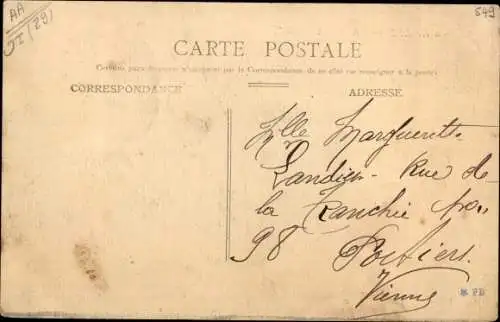 AA
549
CARTE POSTALE
Certains pays étrangers n'acceptent pas la Correspondance de ce côté (se renseigner à la poste)
CORRESPONDANCE
ADRESSE
Mlle Marguerite
Rue de
la Tranchée
98 Poitiers.
Vienne